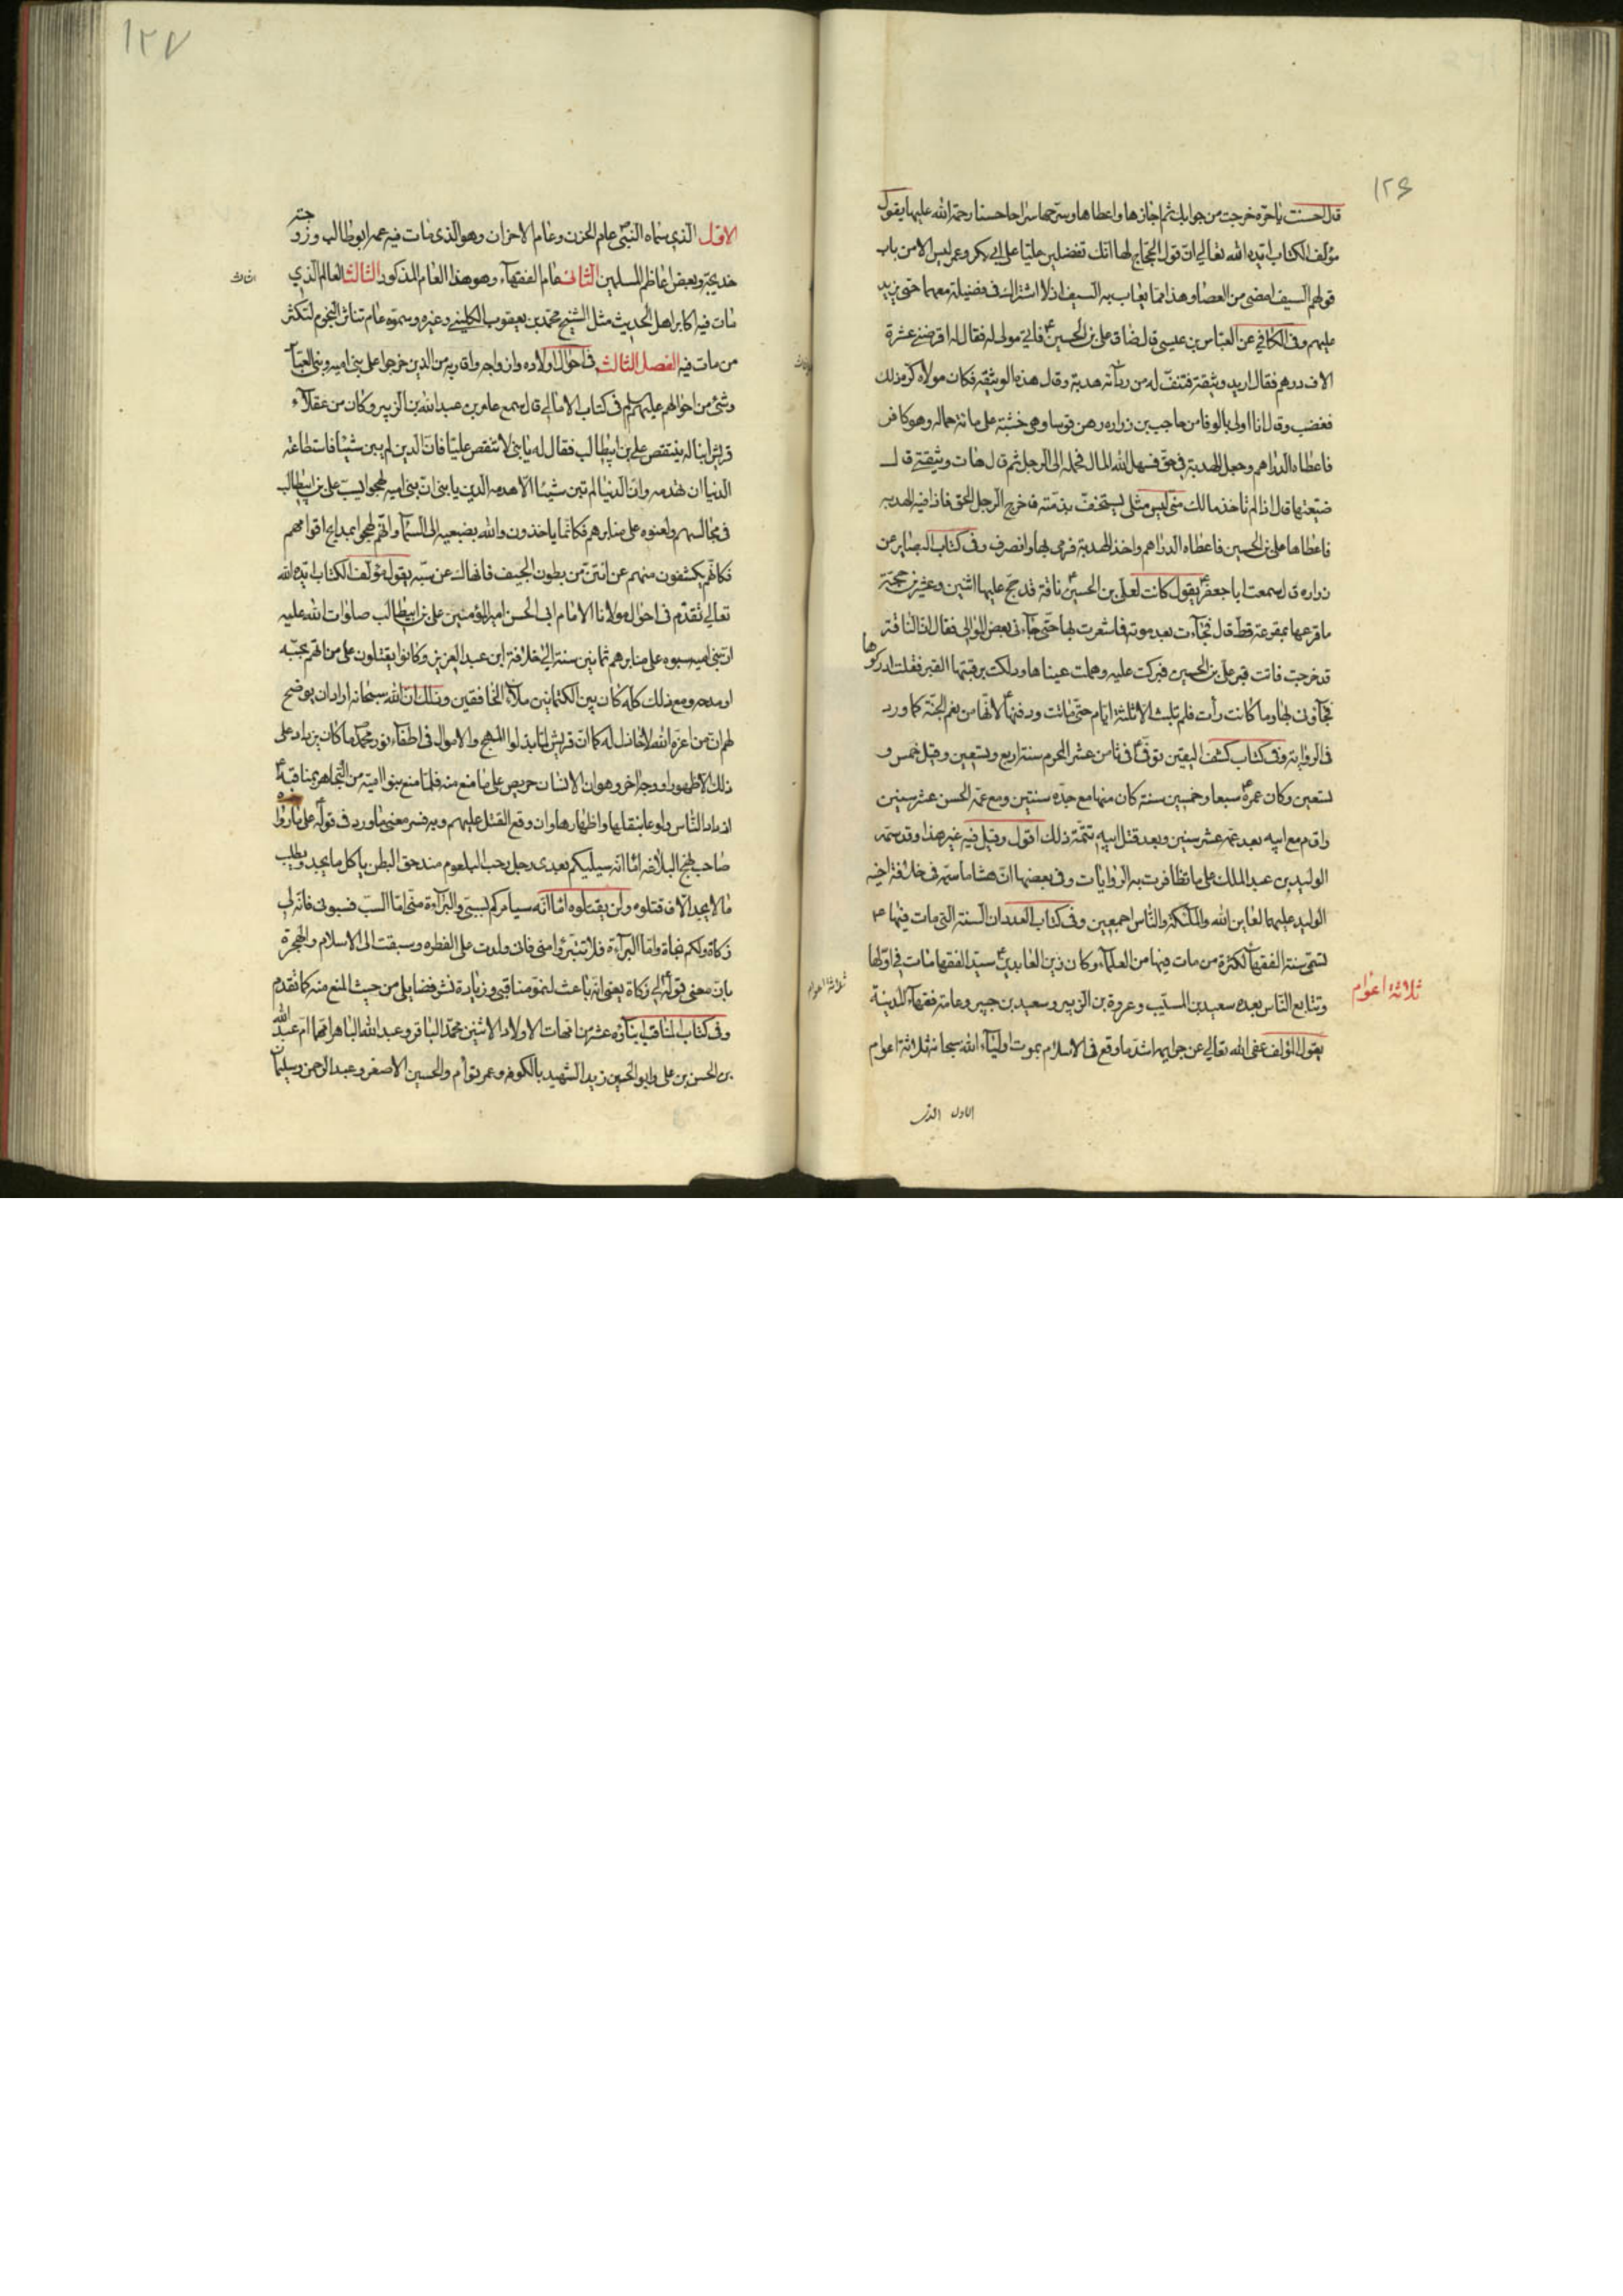 ١٢٦
قال احسنت يا حرّه خرجت من جوابك ثم اجازها واعطاها وسرّحها سراحا حسنا رحمة الله عليها يقول
مؤلف الكتاب ايّده الله تعالى انّ قول الحجّاج لها انك تفضلين عليّا على ابي بكر وعمر ليس الا من باب
قولهم السيف امضى من العصا وهذا مما يعاب به السيف اذ لا اشتراك في فضيلة معهما حتى يزيد
عليهم وفي الكافي عن العبّاس بن عيسى قال ضاق علي بن الحسين ع فاتى مولى له فقال له اقرضني عشرة
الاف درهم فقال اريد وثيقة فنتف له من ردآئه هدبة وقال هذه الوثيقه فكان مولاه كره ذلك
فغضب وقال انا اولى بالوفا من حاجب بن زراره رهن قوسا وهي خشبة على مائة حماله وهو كافر
فاعطاه الدراهم وجعل الهدبة في حقّ فسهل الله المال فحمله الى الرجل ثم قال هات وثيقتي قال
ضيّعتها قال اذا لم تاخذ مالك منّي ليس مثلي يستخفّ بذمّته فاخرج الرجل الحق فاذا فيه الهدبه
فاعطاها علي بن الحسين فاعطاه الدراهم واخذ الهدبة فرمى بها وانصرف وفي كتاب البصاير عن
زراره قال سمعت ابا جعفر ع يقول كانت لعلي بن الحسين ع ناقة قد حجّ عليها اثنين وعشرين حجّة
ما قرعها بمقرعة قط قال فجآءت بعد موته فما شعرت بها حتّى جآءني بعض الموالى فقال انّ الناقة
قد خرجت فاتت قبر علي بن الحسين فبركت عليه وهملت عيناها ودلكت برقبتها القبر فقلت ادركوها
فجآؤني بها وما كانت رأت فلم تلبث الا ثلثة ايام حتّى ماتت ودفنها ع لانّها من نعم الجنّة كما ورد
في الرواية وفي كتاب كشف اليقين توفّي ع في ثامن عشر المحرم سنة اربع وتسعين وقيل خمس و
تسعين وكان عمره ع سبعا وخمسين سنة كان منها مع جدّه سنتين ومع عمّه الحسن عشر سنين
واقام مع ابيه بعد عمّه عشر سنين وبعد قتل ابيه تتمّة ذلك اقول وقيل فيه غير هذا وقد سمّه
الوليد بن عبد الملك على ما تظافرت به الروايات وفي بعضها انّ هشاما سمّه في خلافة اخيه
الوليد عليهما لعاين الله والملئكة والنّاس اجمعين وفي كتاب العدد ان السنة التي مات فيها ع
تسمّى سنة الفقهآ لكثرة من مات فيها من العلمآء وكان زين العابدين ع سيّد الفقها مات في اوّلها
وتتابع النّاس بعده سعيد بن المسيّب وعروة بن الزبير وسعيد بن جبير وعامة فقهآء المدينة
ثلاثة اعوام
يقول المؤلف عفى الله تعالى عن جرايمه اشدّ ما وقع في الاسلام بموت اوليآء الله سبحانه ثلاثة اعوام
الاول الذى
١٢٧
الاوّل الذي سمّاه النبيّ عام الحزن وعام الاحزان وهو الذي مات فيه عمه ابو طالب وزوجته
خديجة وبعض اعاظم المسلمين الثاني عام الفقهآء وهو هذا العام المذكور الثالث العام الذي
مات فيه اكابر اهل الحديث مثل الشيخ محمد بن يعقوب الكليني وغيره وسمّوه عام تناثر النجوم لتكثر
من مات فيه الفصل الثالث في احوال اولاده وازواجه واقاربه من الذين خرجوا على بني اميه وبني العبّاس
وشئ من احوالهم عليهم السلم في كتاب الامالي قال سمع عامر بن عبد الله بن الزبير وكان من عقلآء
قريش ابنا له ينتقص علي بن ابيطالب فقال له يا بنيّ لا تنتقص عليّا فانّ الدين لم يبن شيئا فاستطاعت
الدنيا ان تهدمه وانّ الدنيا لم تبن شيئا الا هدمه الدين يا بني انّ بني اميه لهجوا بسبّ علي بن ابيطالب
في مجالسهم ولعنوه على منابرهم فكانّما ياخذون والله بضبعيه الى السمآء وانّهم لهجوا بمدايح اقوامهم
فكانّهم يكشفون منهم عن انتن من بطون الجيف فانهاك عن سبّه يقول مؤلف الكتاب ايّده الله
تعالى تقدّم في احوال مولانا الامام ابي الحسن امير المؤمنين علي بن ابيطالب صلوات الله عليه
انّ بني اميه سبوه على منابرهم ثمانين سنة الى خلافة ابن عبد العزيز وكانوا يقتلون على من اتهم بحبّه
او مدحه ومع ذلك كلّه كان بين الكتمانين ملأ الخافقين وذلك انّ الله سبحانه اراد ان يوضح
لهم انّ من اعزّه الله لا خاذل له كما انّ قريش لمّا بذلوا المهج والاموال في اطفآء نور محمّد ما كان يزداد على
ذلك الا ظهورا ووجه اخر وهو ان الانسان حريص على ما منع منه فلمّا منع بنو اميّة من التجاهر بمناقبه ع
ازداد النّاس ولوعا بنقلها واظهارها وان وقع القتل عليهم وبه فسر معنى ما ورد في قوله ع على ما رواه
صاحب نهج البلاغه امّا انّه سيليكم بعدي رجل رحب البلعوم مندحق البطن ياكل ما يجد ويطلب
ما لا يجد الا فاقتلوه ولن يقتلوه امّا انّه سيامركم بسبّي والبرآءة منّي امّا السبّ فسبوني فانه لي
زكاة ولكم نجاة وامّا البرآءة فلا تتبرّؤا مني فاني ولدت على الفطره وسبقت الى الاسلام والهجرة
بانّ معنى قوله لي زكاة يعني انّه باعث لنموّ مناقبي وزيادة نشر فضايلي من حيث المنع منه كما تقدم
وفي كتاب المناقب ابنآؤه عشر من امّهات الاولاد الا اثنين محمّد الباقر وعبد الله الباهر امهما امّ عبد الله
بن الحسن بن علي وابو الحسين زيد الشهيد بالكوفه وعمر توأم والحسين الاصغر وعبد الرحمن وسليمان